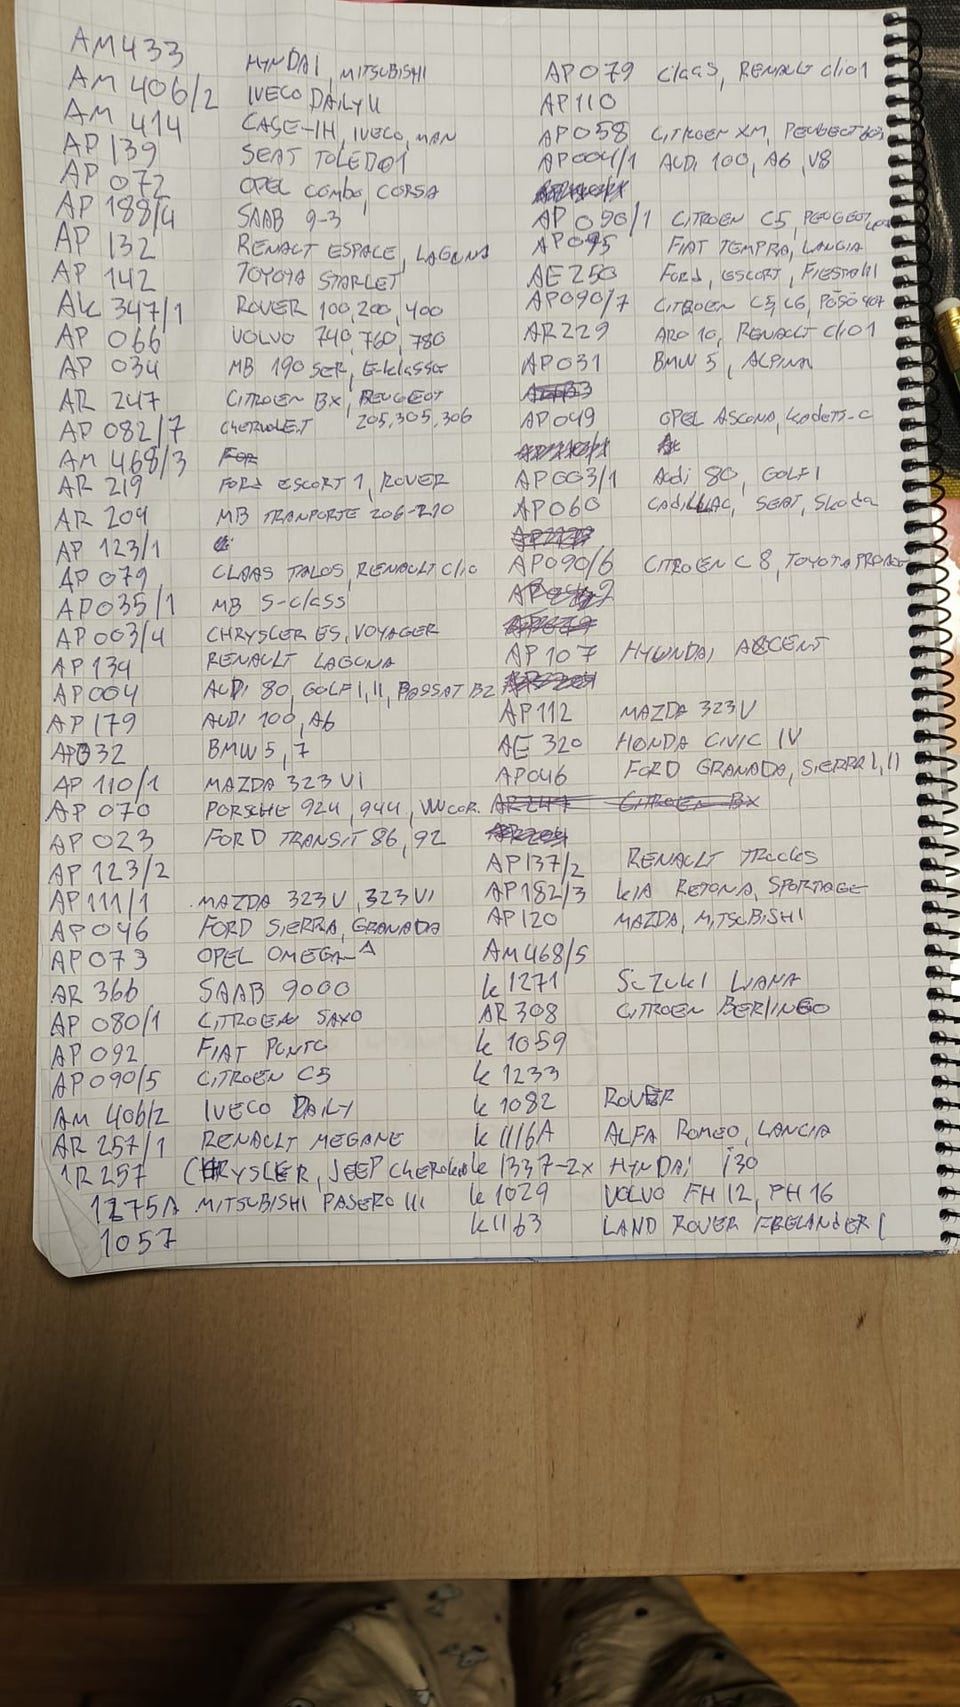 AM433 HYNDAI, MITSUBISHI
AM 406/2 IVECO DAILY II
AM 414 CASE-IH, IVECO, MAN
AP 139 SEAT TOLEDO1
AP 072 OPEL COMBO, CORSA
AP 188/4 SAAB 9-3
AP 132 RENALT ESPACE, LAGUNA
AP 142 TOYOTA STARLET
AK 347/1 ROVER 100,200,400
AP 066 VOLVO 740,760,780
AP 034 MB 190 SER, E-klasse
AR 247 CITROEN BX, PEUGEOT
AP 082/7 CHEVROLET 205,305,306
AM 468/3
AR 219 FORD ESCORT 1, ROVER
AR 209 MB TRANPORTE 206-210
AP 123/1
AP 079 CLAAS TALOS, RENAULT Clio
AP035/1 MB S-class
AP 003/4 CHRYSLER ES, VOYAGER
AP 134 RENAULT LAGUNA
AP 004 AUDI 80, GOLF I,II, PASSAT B2
AP 179 AUDI 100, A6
AP032 BMW 5, 7
AP 110/1 MAZDA 323 VI
AP 070 PORSCHE 924, 944, VW COR.
AP 023 FORD TRANSIT 86, 92
AP 123/2
AP 111/1 MAZDA 323 V, 323 VI
AP 046 FORD SIERRA, GRANADA
AP 073 OPEL OMEGA-A
AR 366 SAAB 9000
AP 080/1 CITROEN SAXO
AP 092 FIAT PUNTO
AP 090/5 CITROEN C5
AM 406/2 IVECO DAILY
AR 257/1 RENAULT MEGANE
1R 257 CHRYSLER, JEEP CHEROKEE
1275A MITSUBISHI PASERO III
1057
AP079 claas, RENAULT clio1
AP110
AP058 CITROEN XM, PEUGEOT 605
AP004/1 AUDI 100, A6, V8
AP 090/1 CITROEN C5, PEUGEOT
AP095 FIAT TEMPRA, LANCIA
AE 250 Ford, ESCORT, FIESTA III
AP090/7 CITROEN C5, C6, PÖSÖ 407
AR229 ARO 10, RENAULT Clio1
AP031 BMW 5, ALPINA
AP049 OPEL ASCONA, kadett-c
AP003/1 Audi 80, GOLF1
AP060 CADILLAC, SEAT, Skoda
AP090/6 CITROEN C8, TOYOTA PROACE
AP 107 HYUNDAI ACCENT
AP112 MAZDA 323 V
AE 320 HONDA CIVIC IV
AP046 FORD GRANADA, SIERRA I,II
AR247 CITROEN BX
AP137/2 RENAULT TRUCKS
AP182/3 KIA RETONA, SPORTAGE
AP120 MAZDA, MITSUBISHI
AM468/5
k 1271 SUZUKI LIANA
AR 308 CITROEN BERLINGO
k 1059
k 1233
k 1082 ROVER
k 1116A ALFA ROMEO, LANCIA
k 1337-2x HYNDAI i30
k 1029 VOLVO FH 12, FH 16
k1163 LAND ROVER FREELANDER 1